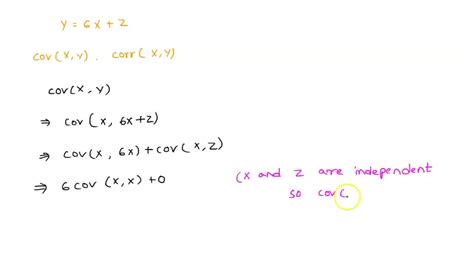 Y = 6X + Z
cov(X,Y) . corr(X,Y)
cov(X,Y)
⇒ cov(X, 6X+Z)
⇒ cov(X, 6X) + cov(X,Z)
⇒ 6 cov(X,X) + 0
(X and Z are independent
so cov(